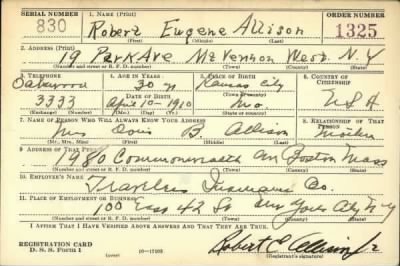 SERIAL NUMBER 1. NAME (Print) ORDER NUMBER
830 Robert Eugene Allison 1325
(First) (Middle) (Last)
2. ADDRESS (Print)
19 Park Ave Mt Vernon West. N.Y
(Number and street or R. F. D. number) (Town) (County) (State)
3. TELEPHONE 4. AGE IN YEARS 5. PLACE OF BIRTH 6. COUNTRY OF CITIZENSHIP
Oakwood 30 Kansas City
DATE OF BIRTH
3333 April 10-1910 Mo. USA
(Exchange) (Number) (Mo.) (Day) (Yr.) (State or country)
7. NAME OF PERSON WHO WILL ALWAYS KNOW YOUR ADDRESS 8. RELATIONSHIP OF THAT PERSON
Mrs B. Allison Mother
(Mr., Mrs., Miss) (First) (Middle) (Last)
9. ADDRESS OF THAT PERSON
1980 Commonwealth Av Boston Mass
(Number and street or R. F. D. number) (Town) (County) (State)
10. EMPLOYER'S NAME
Travelers Insurance Co.
11. PLACE OF EMPLOYMENT OR BUSINESS
100 East 42 St New York City N.Y
(Number and street or R. F. D. number) (Town) (County) (State)
I AFFIRM THAT I HAVE VERIFIED ABOVE ANSWERS AND THAT THEY ARE TRUE.
REGISTRATION CARD
D. S. S. Form 1 (over) Robert E Allison Jr
(Registrant's signature)